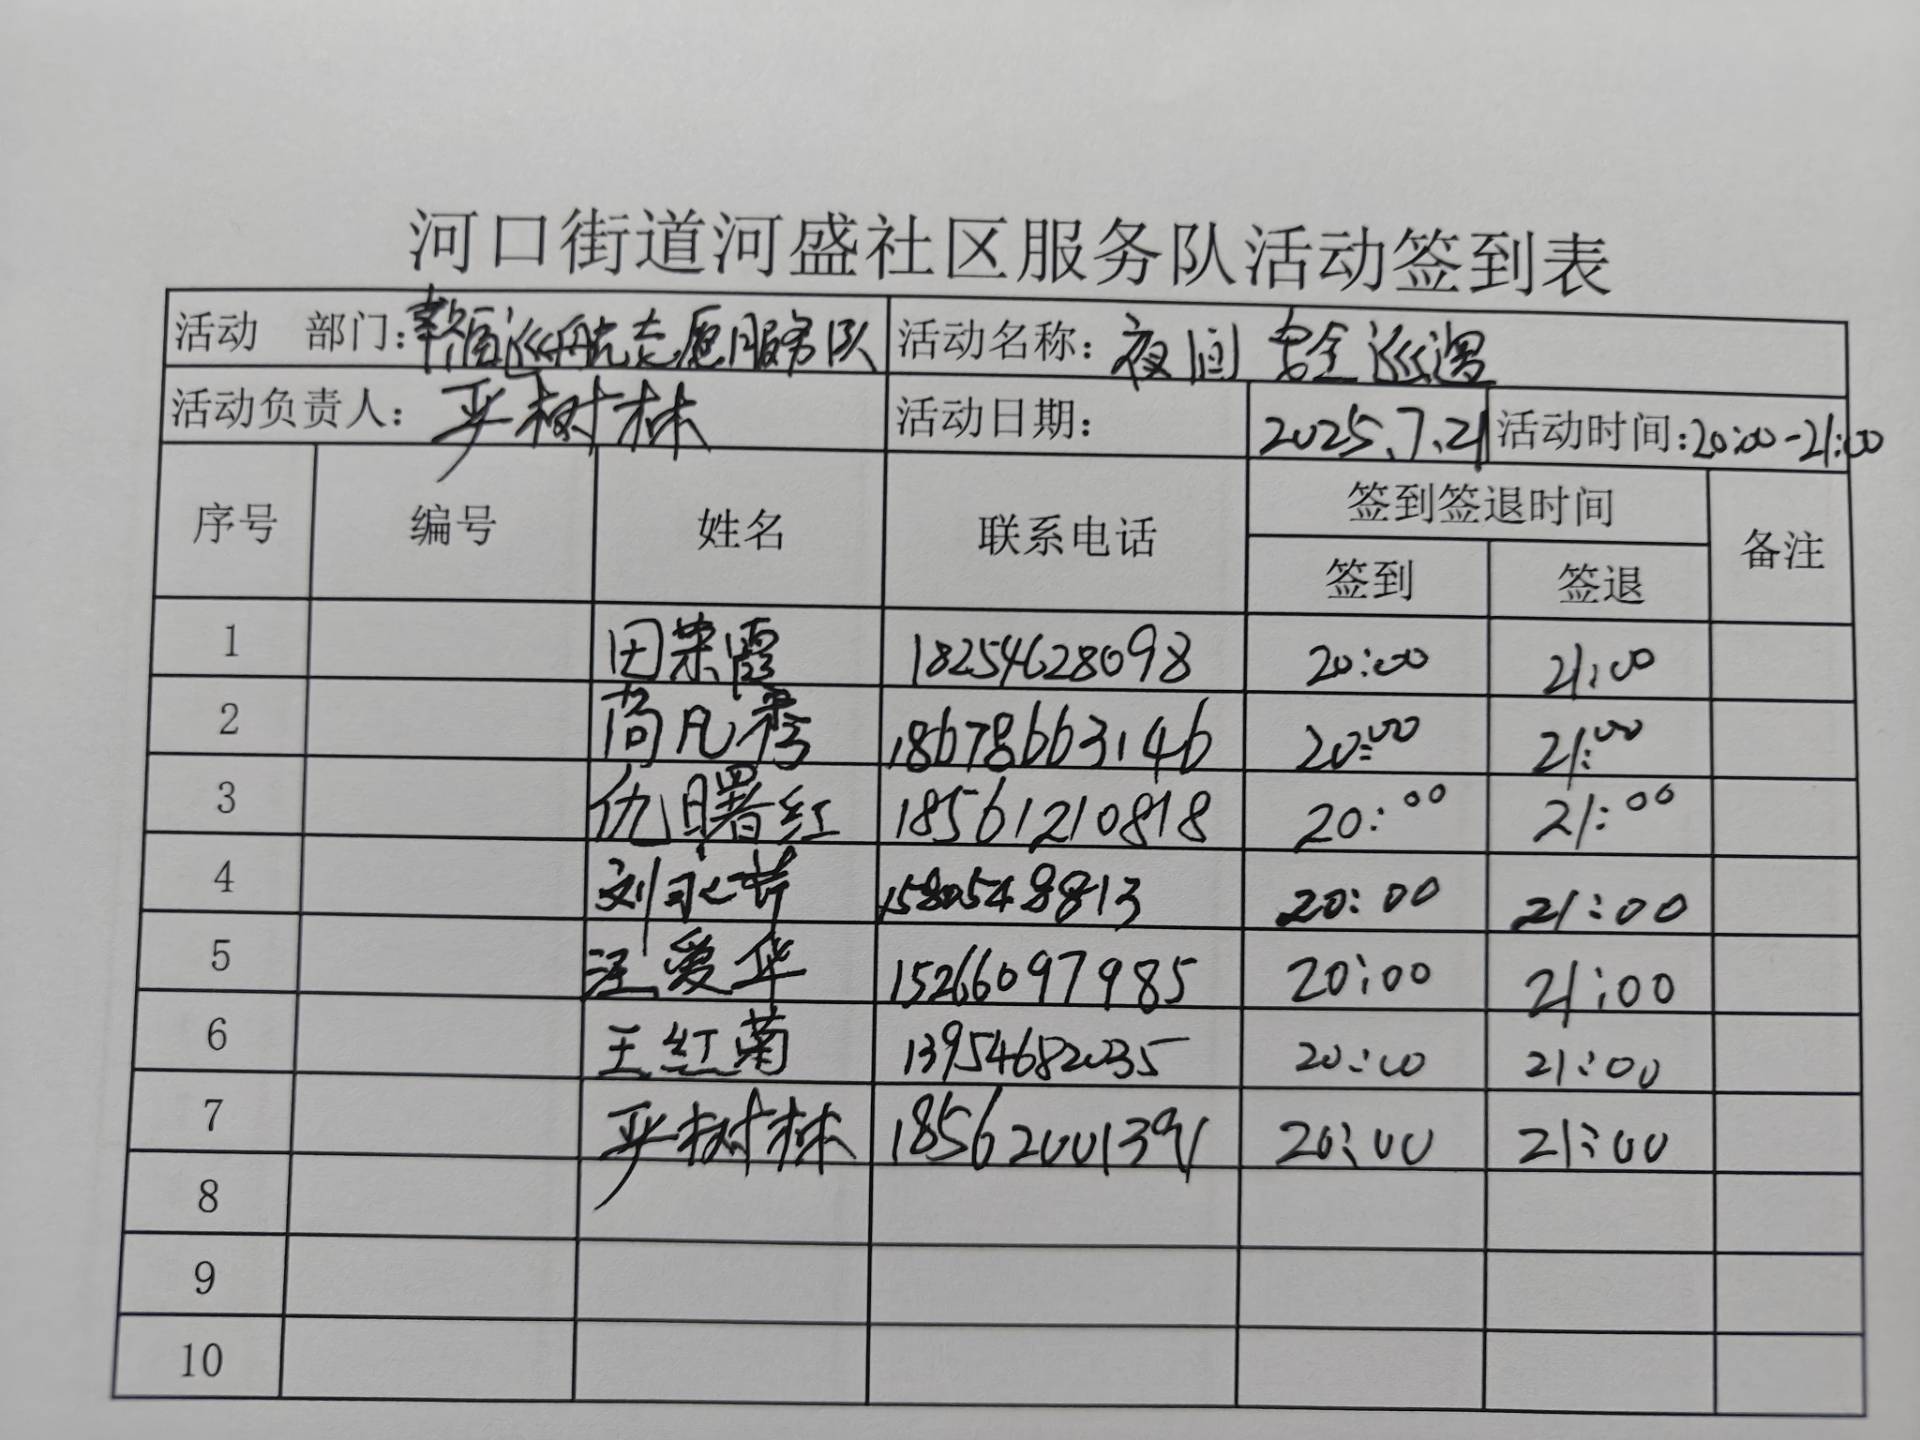 河口街道河盛社区服务队活动签到表
活动 部门: 巡航志愿服务队 活动名称: 夜间安全巡逻
活动负责人: 严树林 活动日期: 2025.7.21 活动时间:20:00-21:00
序号 编号 姓名 联系电话 签到签退时间 备注
签到 签退
1 田荣霞 18254628098 20:00 21:00
2 尚凡秀 18678663146 20:00 21:00
3 仇曙红 18561210818 20:00 21:00
4 刘永 20:00 21:00
5 汪爱华 15266097985 20:00 21:00
6 王红菊 13954682035 20:00 21:00
7 严树林 18562001391 20:00 21:00
8
9
10